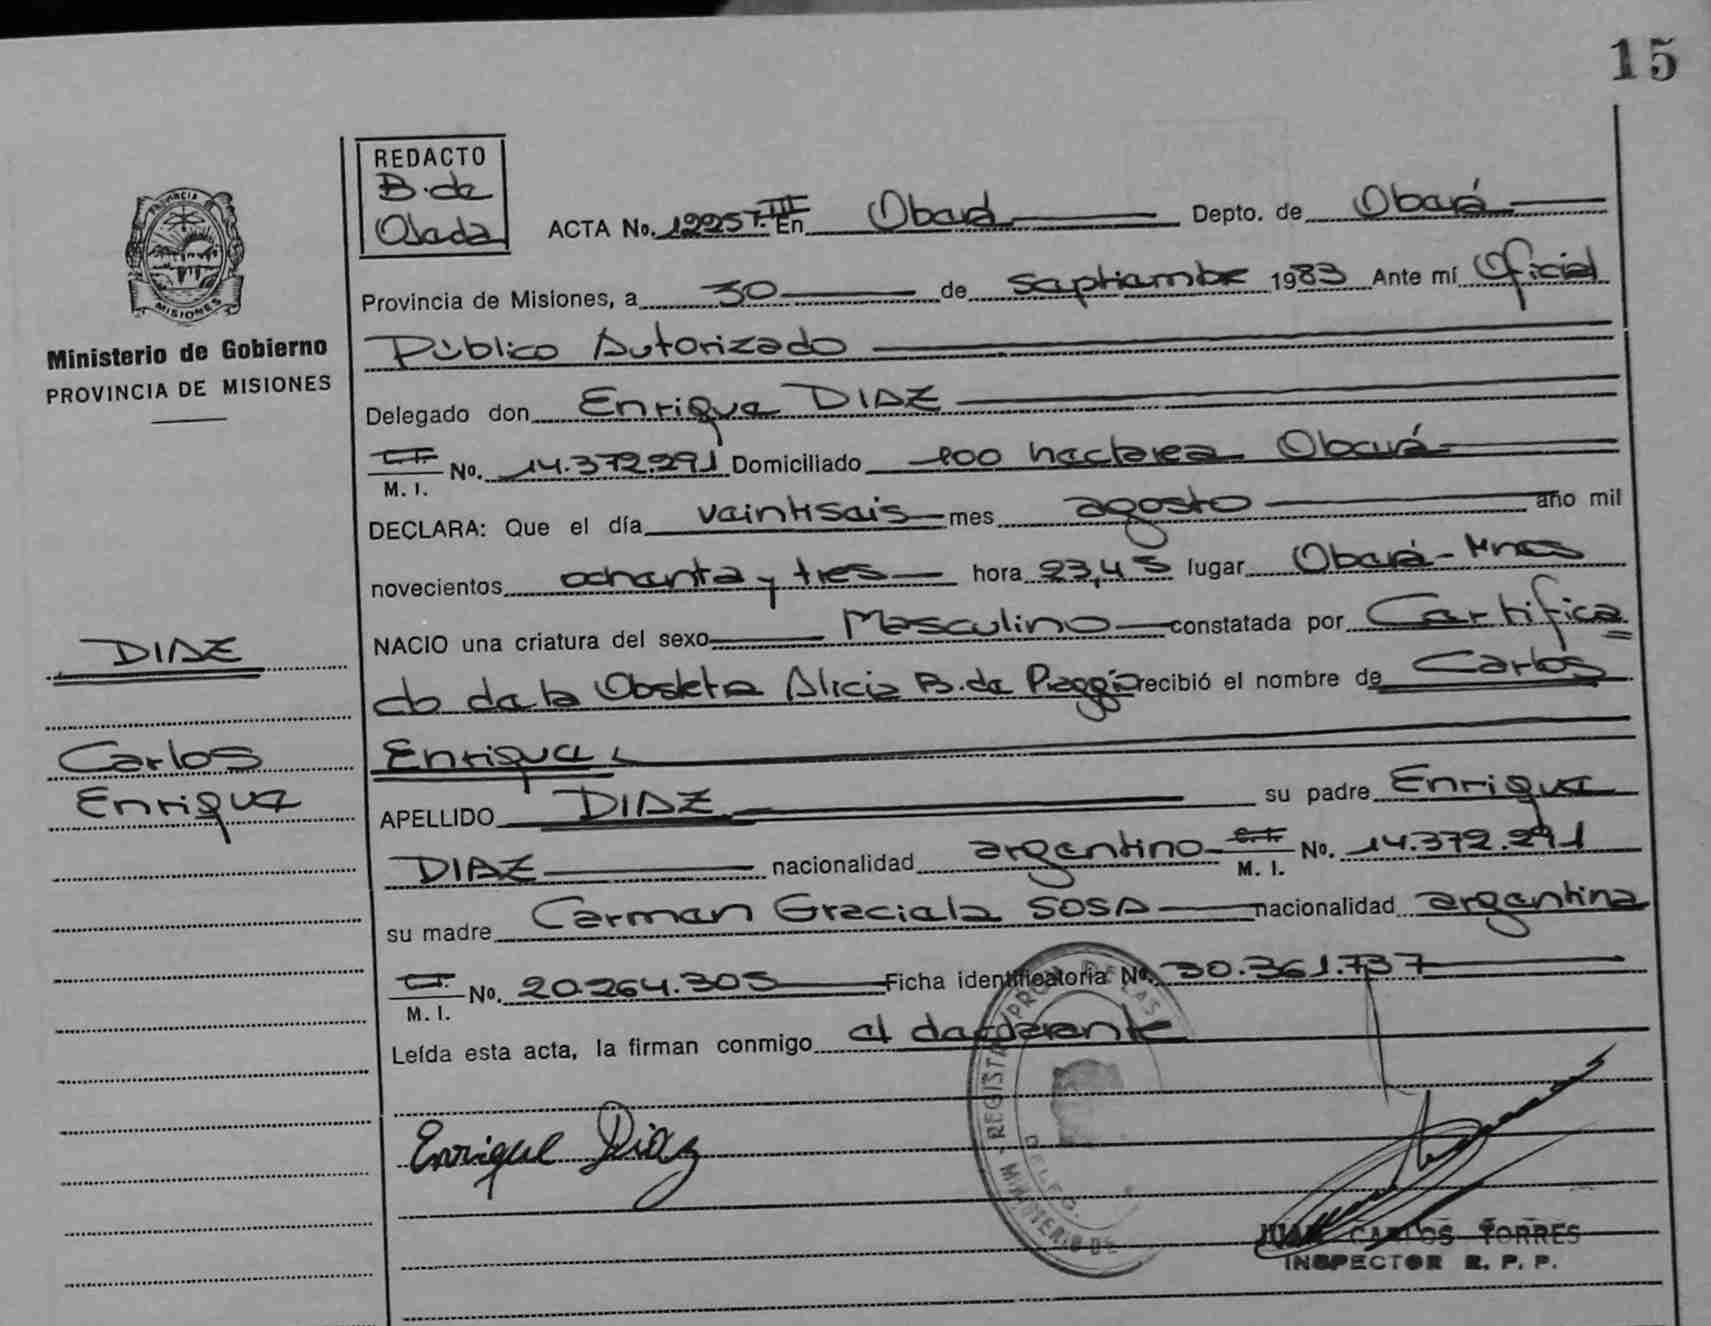 15
REDACTO
B. de
Osada
PROVINCIA
MISIONES
Ministerio de Gobierno
PROVINCIA DE MISIONES
ACTA No. 1225T.III En Oberá Depto. de Oberá
Provincia de Misiones, a 30 de septiembre 1983 Ante mí Oficial
Público Autorizado
Delegado don Enrique DIAZ
C.I. M. I. No. 14.372.291 Domiciliado 100 hectarea Oberá
DECLARA: Que el día veintiseis mes agosto año mil
novecientos ochenta y tres hora 23,45 lugar Oberá-Mnes
NACIO una criatura del sexo Masculino constatada por Certifica
do de la Obstetra Alicia B. de Piaggio recibió el nombre de Carlos
Enrique
APELLIDO DIAZ su padre Enrique
DIAZ nacionalidad argentino C.I. M. I. No. 14.372.291
su madre Carmen Graciela SOSA nacionalidad argentina
C.I. M. I. No. 20.264.305 Ficha identificatoria No. 30.361.737
Leída esta acta, la firman conmigo el declarante
DIAZ
Carlos
Enrique
Enrique Diaz
REGISTRO
MINISTERIO DE
DELEG.
JUAN CARLOS TORRES
INSPECTOR R. P. P.